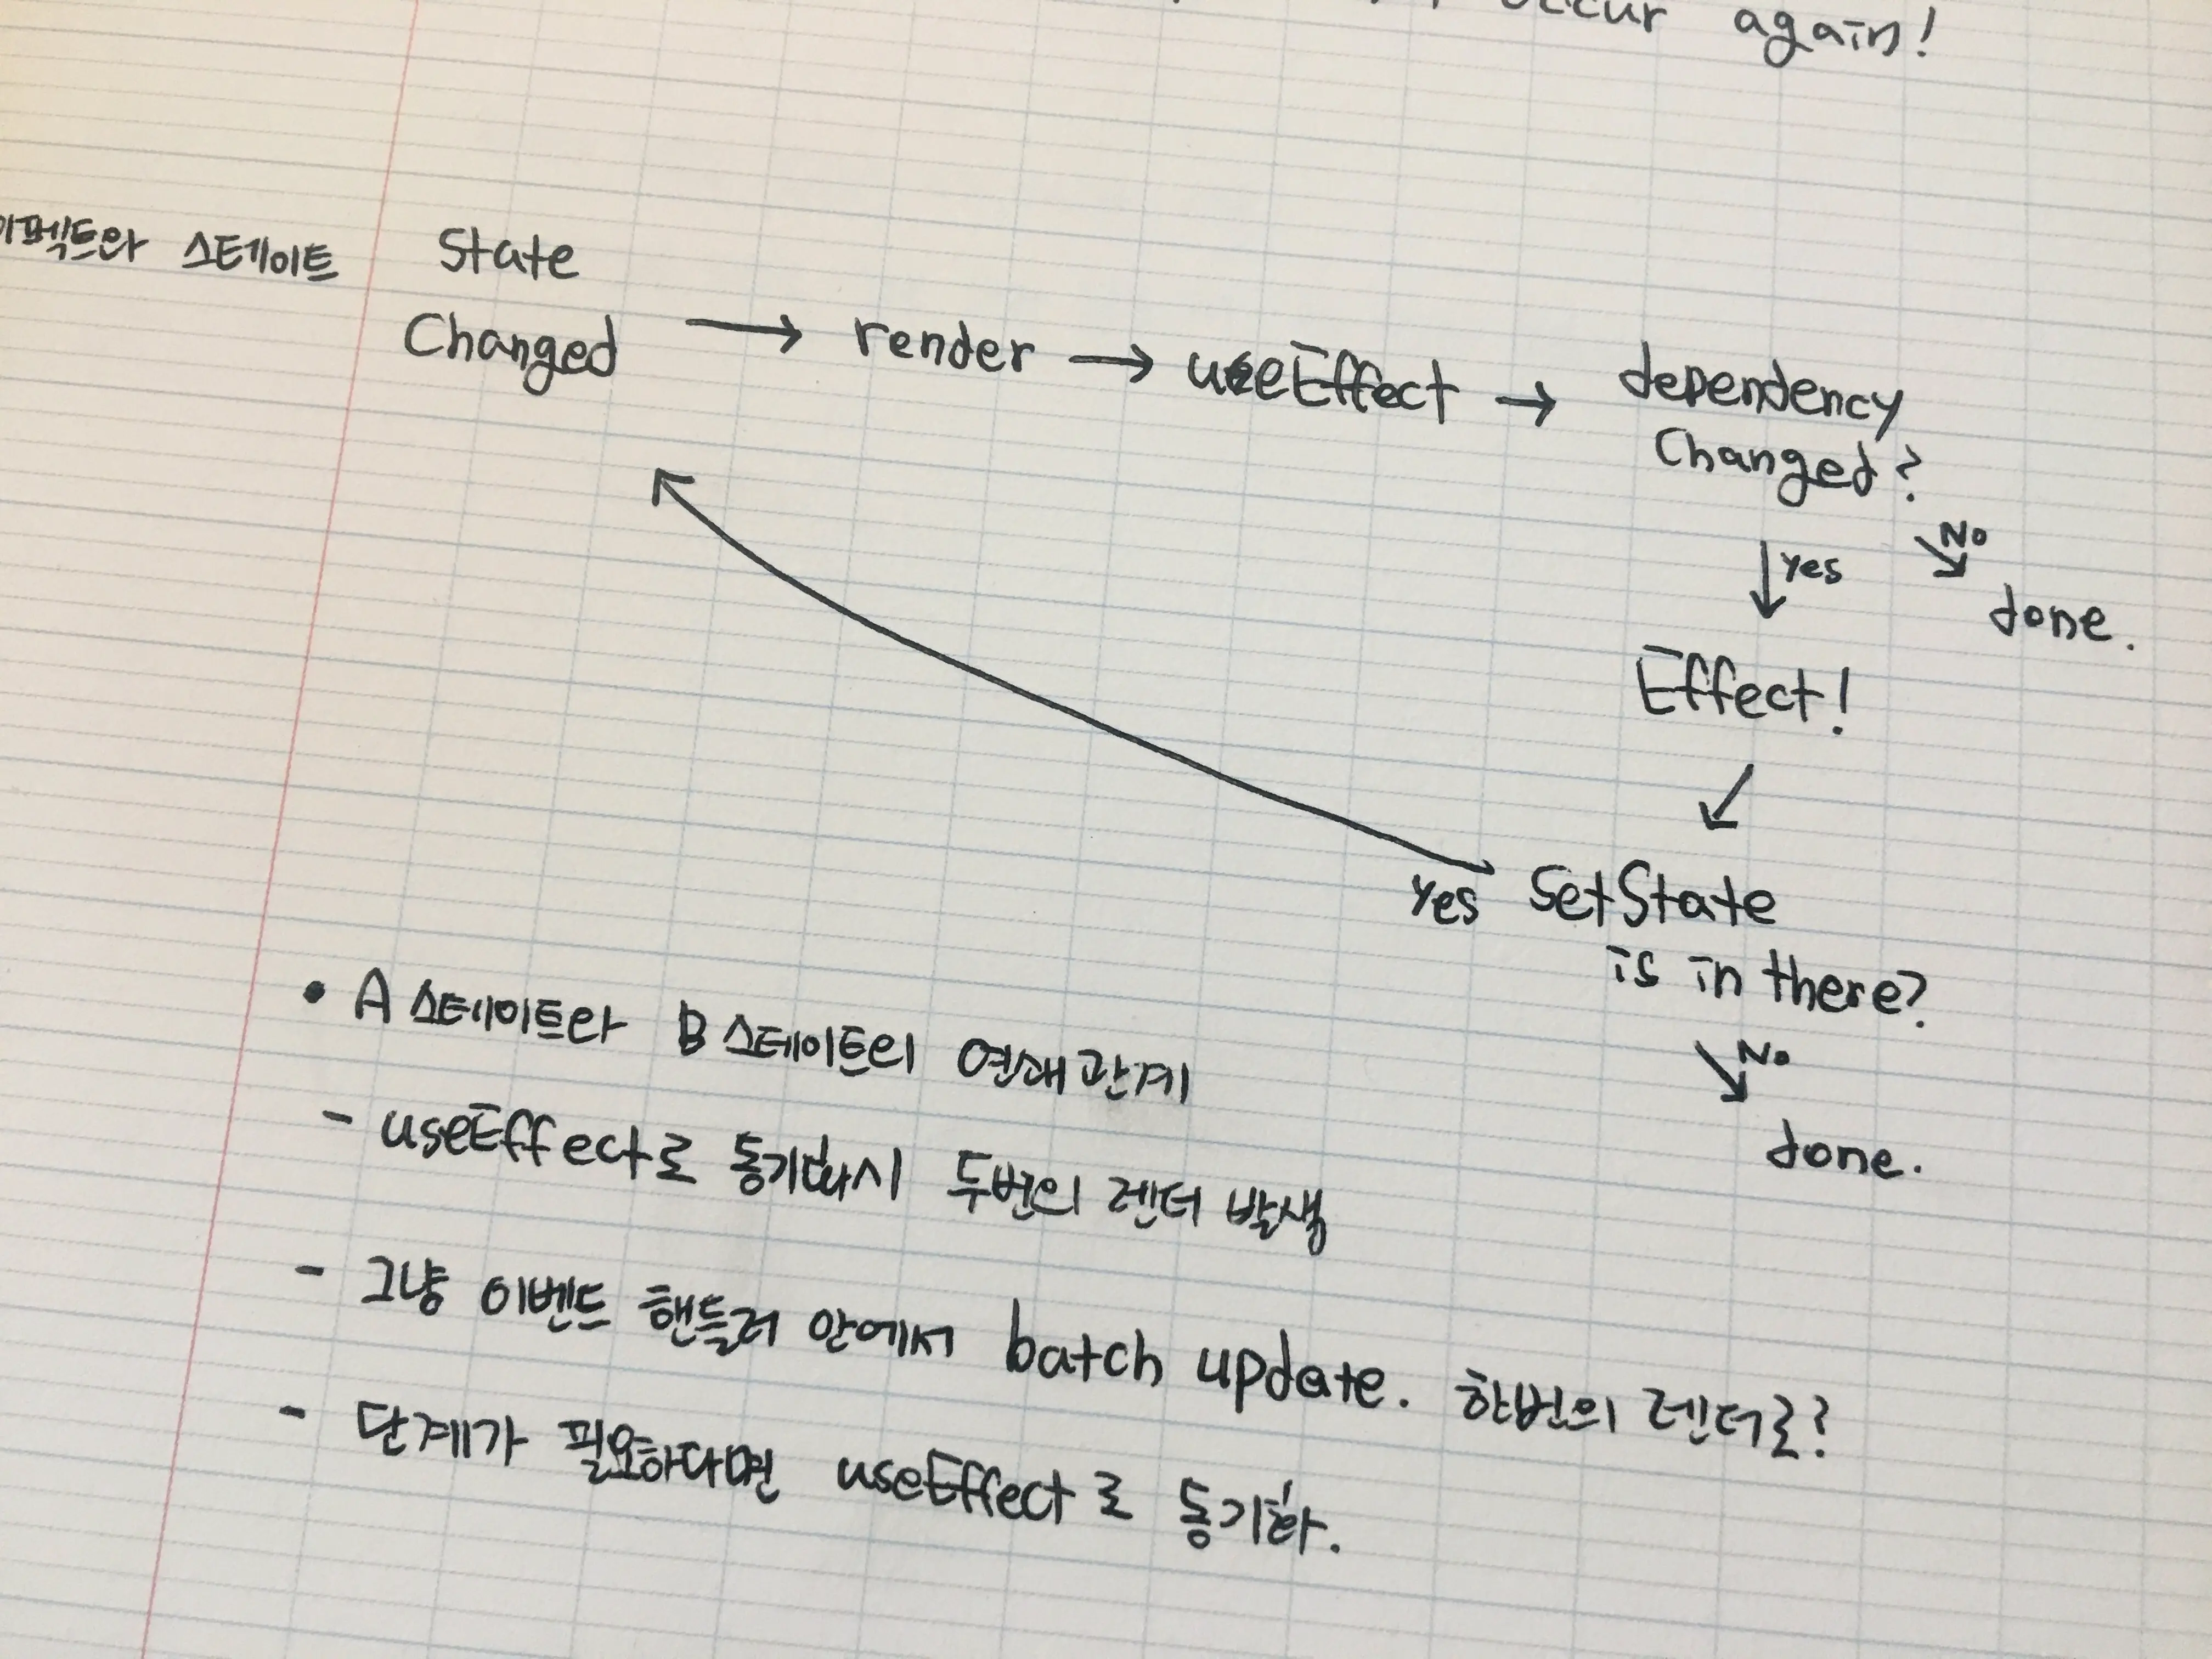 occur again!
이펙트와 스테이트
State
Changed → render → useEffect → dependency
Changed?
yes
No
done.
Effect!
yes SetState
is in there?
No
done.
• A 스테이트와 B 스테이트의 연쇄 관계
- useEffect로 동기화시 두번의 렌더 발생
- 그냥 이벤트 핸들러 안에서 batch update. 한번의 렌더로?
- 단계가 필요하다면 useEffect로 동기화.